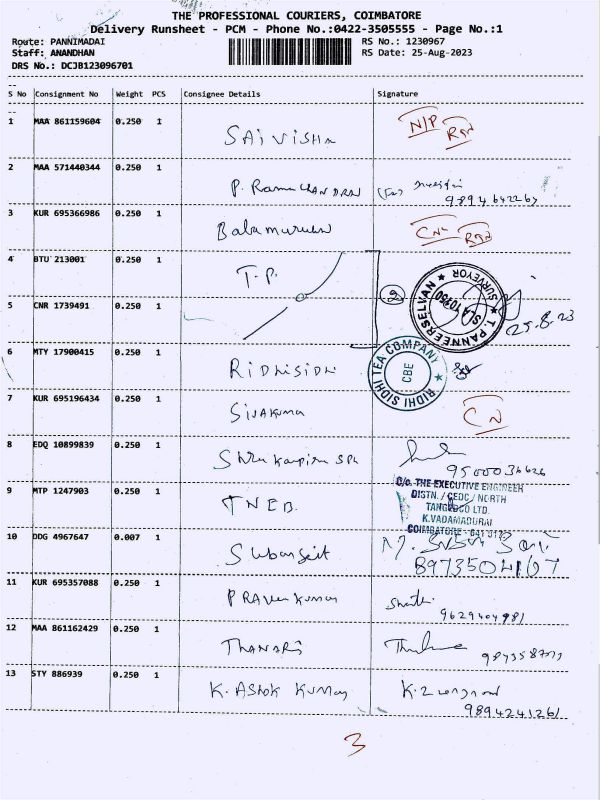 THE PROFESSIONAL COURIERS, COIMBATORE
Delivery Runsheet - PCM - Phone No.:0422-3505555 - Page No.:1
Route: PANNIMADAI RS No.: 1230967
Staff: ANANDHAN RS Date: 25-Aug-2023
DRS No.: DCJB123096701
S No Consignment No Weight PCS Consignee Details Signature
1 MAA 861159604 0.250 1 SAI VISHA N/P
2 MAA 571440344 0.250 1 P. Rama CHANDRAN
3 KUR 695366986 0.250 1 Balamurugan CN
4 BTU 213001 0.250 1 T.P. 2
T. PANNEERSELVAN ★ SURVEYOR ★
25.8.23
5 CNR 1739491 0.250 1
6 MTY 17900415 0.250 1 RIDHISIDHI
RIDHI SIDHI TEA COMPANY ★ CBE
7 KUR 695196434 0.250 1 SIVAKUMAR CN
8 EDQ 10899839 0.250 1
9500036626
9 MTP 1247903 0.250 1 TNEB
O/o. THE EXECUTIVE ENGINEER
DISTN. / CEDC / NORTH
TANGEDCO LTD.
K.VADAMADURAI
COIMBATORE
10 DDG 4967647 0.007 1
8973504167
11 KUR 695357088 0.250 1 PRAVEEN KUMAR
9629404981
12 MAA 861162429 0.250 1
13 STY 886939 0.250 1 K. ASHOK KUMAR
9894241261
3